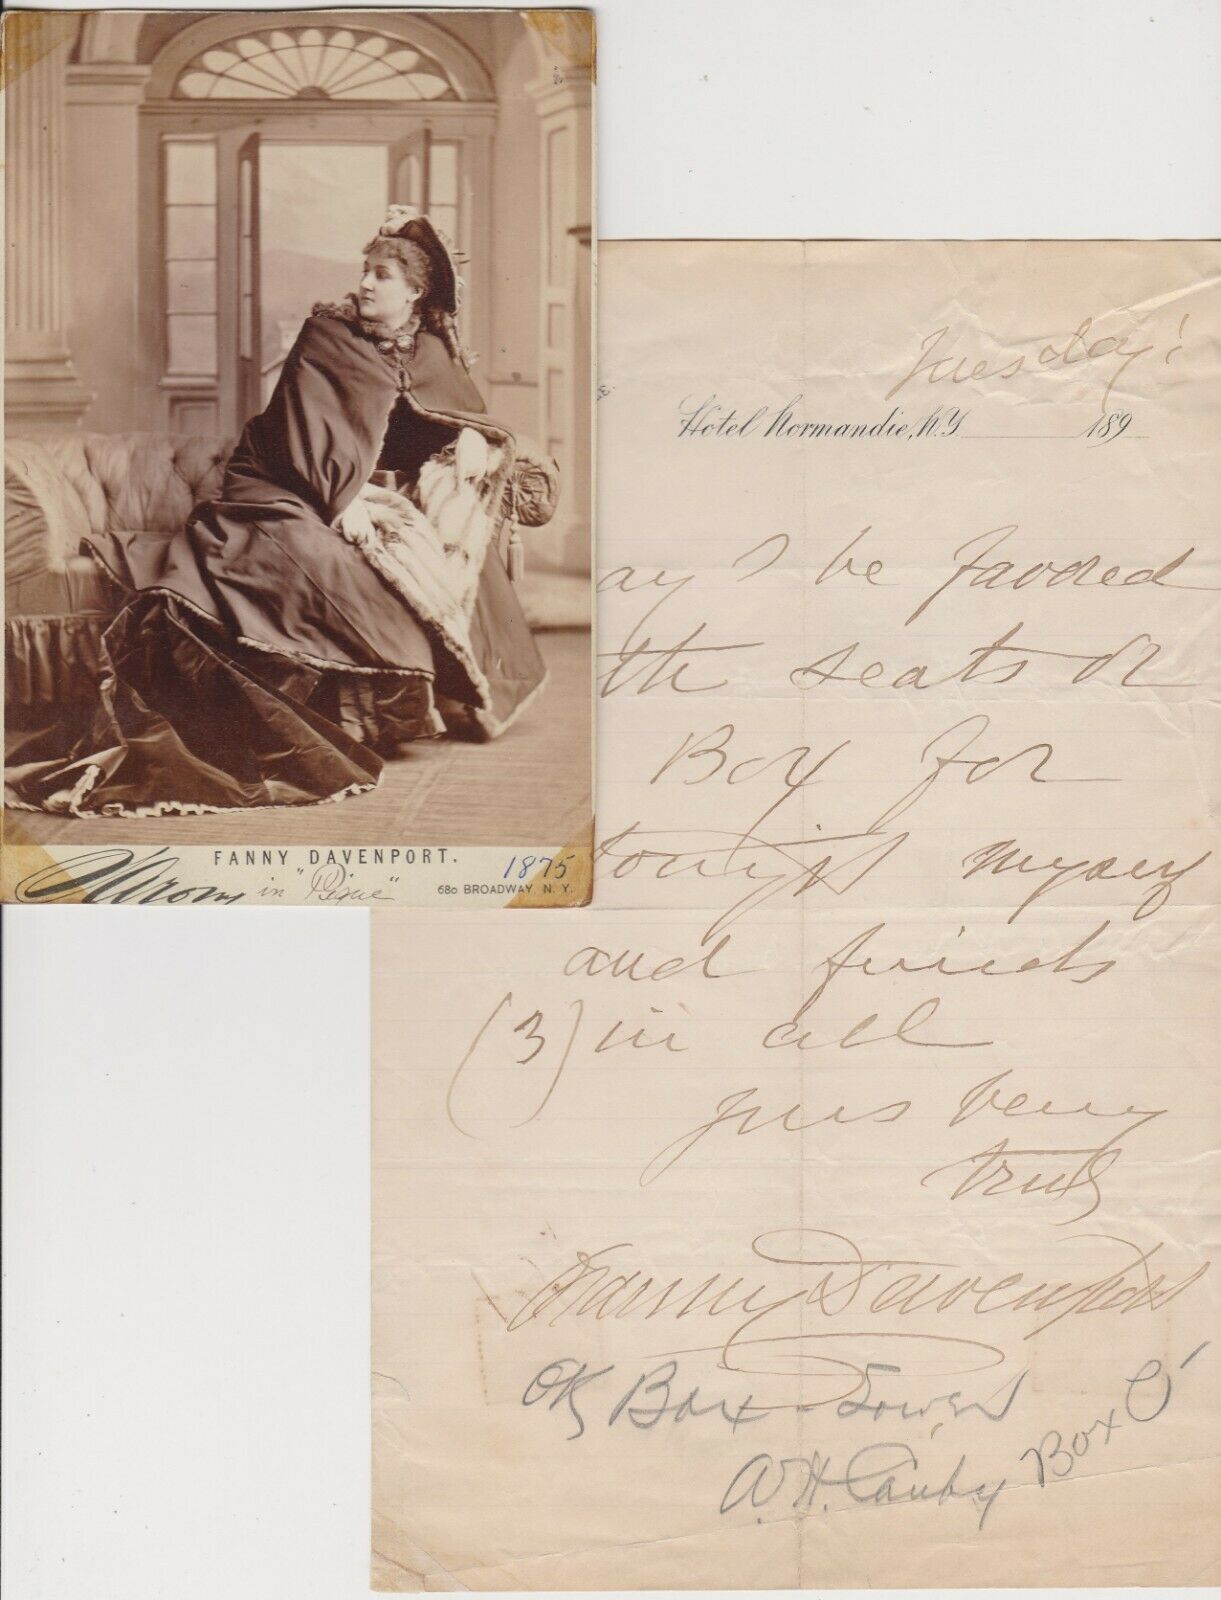 FANNY DAVENPORT.
1875
in "Pique"
680 BROADWAY, N. Y.
Tuesday!
Hotel Normandie, N.Y. 189
ay I be favored
th seats or
Box for
tonight myself
and friends
(3) in all
yours very
truly
Fanny Davenport
OK Box - Lower
A. H. Canby Box C